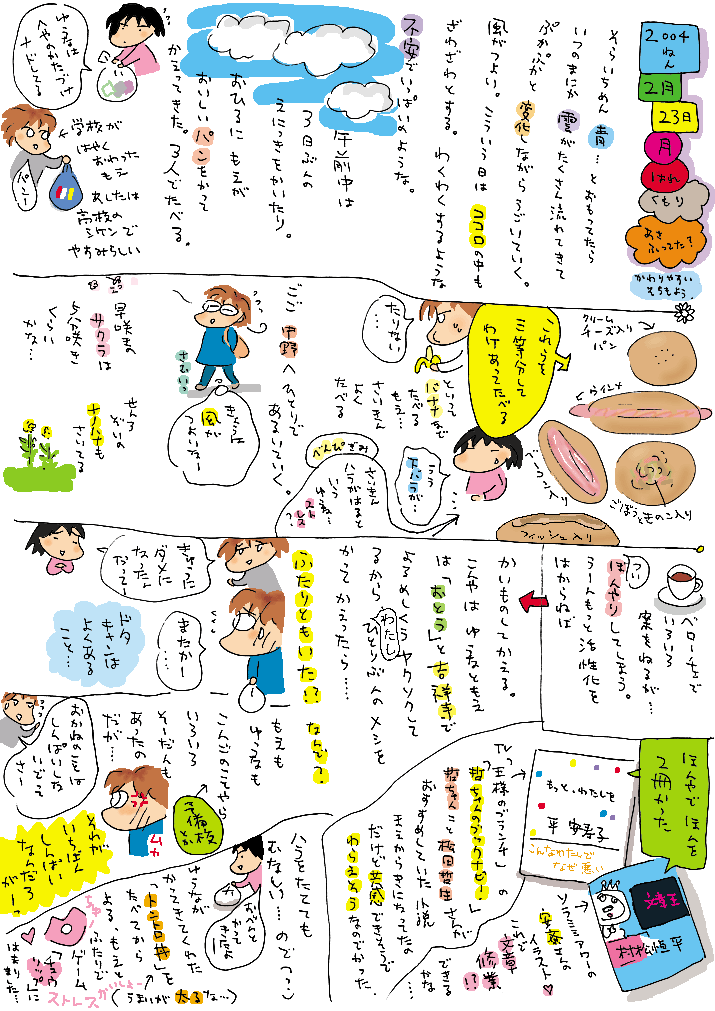 2004
ねん
2月
23日
月
はれ
くもり
あき
ふってた?
かわりやすい
そらもよう
そらいちめん 青…とおもってたら
いつのまにか 雲がたくさん流れてきて
ぷかぷかと 変化しながらうごいていく。
風がつよい。こういう日は ココロの中も
ざわざわとする。わくわくするような
不安でいっぱいのような。
午前中は
3日ぶんの
えにっきをかいたり。
おひるに もえが
おいしいパンをかって
かえってきた。3人でたべる。
ゆうなは
へやのかたづけ
ナドしてる
←学校が
はやく
おわった
もえ
あしたは
高校の
シケンで
やすみらしい
パンー
クリーム
チーズ入り
パン
←ウインナ
ベーコン入り
ごぼうときのこ入り
フィッシュ入り
これらを
三等分して
わけあってたべる
たりない
…
といって
バナナまで
たべる
もえ…
さいきん
よく
たべる
うう
下ハラが…
べんぴぎみ
さいきん
ハラがはると
いう
ゆうな…
スト
レス
?
ごご 中野へひとりで
あるいていく。
さむいっ
きょうは
風が
つよいなー
早咲きの
サクラは
5分咲き
くらい
かな…
せんろ
ぞいの
ナノハナも
さいてる
ベローチェで
いろいろ
案をねるが…
つい
ぼんやりしてしまう。
うーんもっと活性化を
はからねば
かいものしてかえる。
こんやは ゆうなともえ
は「おとう」と吉祥寺で
よるめしくうヤクソクして
るから わたし ひとりぶんのメシを
かってかえったら……
ふたりともいた!? なんで?
きゅうに
ダメに
なったん
だってー
またかー
…
ドタ
キャンは
よくある
こと…
もえも
ゆうなも
こんごのことやら
いろいろ
そーだんも
あったの
だが…
予備校
とか
おかねのことは
しんぱいしな
いでって
さー
ムカ
それが
いちばん
しんぱい
なんだろ
がー!
ほんやでほんを
2冊かった
もっと、わたしを
平安寿子
こんなわたしで
なぜ悪い
文章王
村松恒平
ソラミミアワーの
安齋さんの
イラスト♡
これで
文章
修業
!?
できる
かな
…
TV「王様のブランチ」の
「哲ちゃんのブックナビ」
哲ちゃんこと松田哲夫さんが
おすすめしていた小説
まえからきになってたの
だけど共感できそうで
わらえそうなのでかった。
ハラをたてても
むなしい…のでつ?)
おべんと
かって
きたよ
ゆうなが
かってきてくれた
「トントロ丼」を
たべてから
(うまいが太るな…)
よる、もえと
ふたりで
ゲーム
「チュウ
リップ」に
はまりました…
ちゅー
ストレスがいしょー